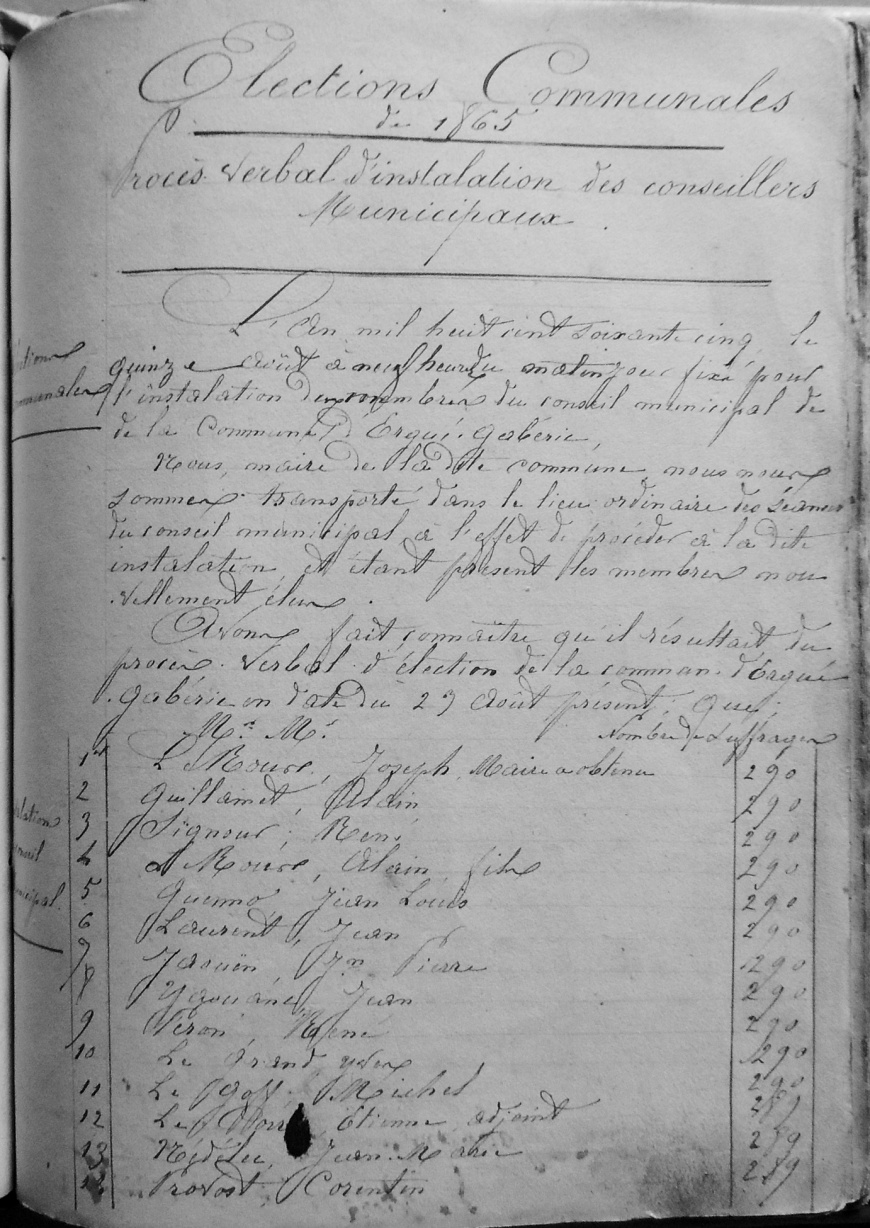 Elections Communales
de 1865
Procès Verbal d'instalation des conseillers
Municipaux
L'an mil huit cent soixante cinq le
quinze août à neuf heur du matin jour fixé pour
l'instalation des membres du conseil municipal de
de la Commune d'Ergué-Gabéric,
Nous, maire de la dite commune nous nous
sommes transporté dans le lieu ordinaire des séances
du conseil municipal à l'effet de procéder à la dite
instalation et étant présent les membres nou
vellement élus.
Avons fait connaître qu'il résultait du
procès-verbal d'élection de la comman. d'Ergué
gabéric en date du 23 août présent, que;
Mrs. Mr.
Nombre de Suffrages
1er Le Roux, Joseph Maire a obtenu 290
2 Guillamet, Alain 290
3 Signour, René 290
4 Le Roux, Alain, fils 290
5 Guenno Jean Louis 290
6 Laurent, Jean 290
7 Jaouën, Jn Pierre 290
8 Jean 290
9 Péron, René 290
10 Le Grand Yves 290
11 Le Goff Michel 290
12 Le Etienne adjoint
13 Nédélec, Jean-Marie
Provost, Corentin